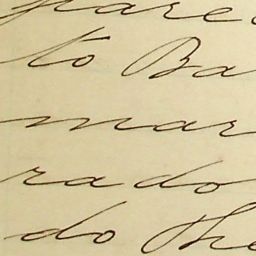 pare
to Ba
mar
rado
do The